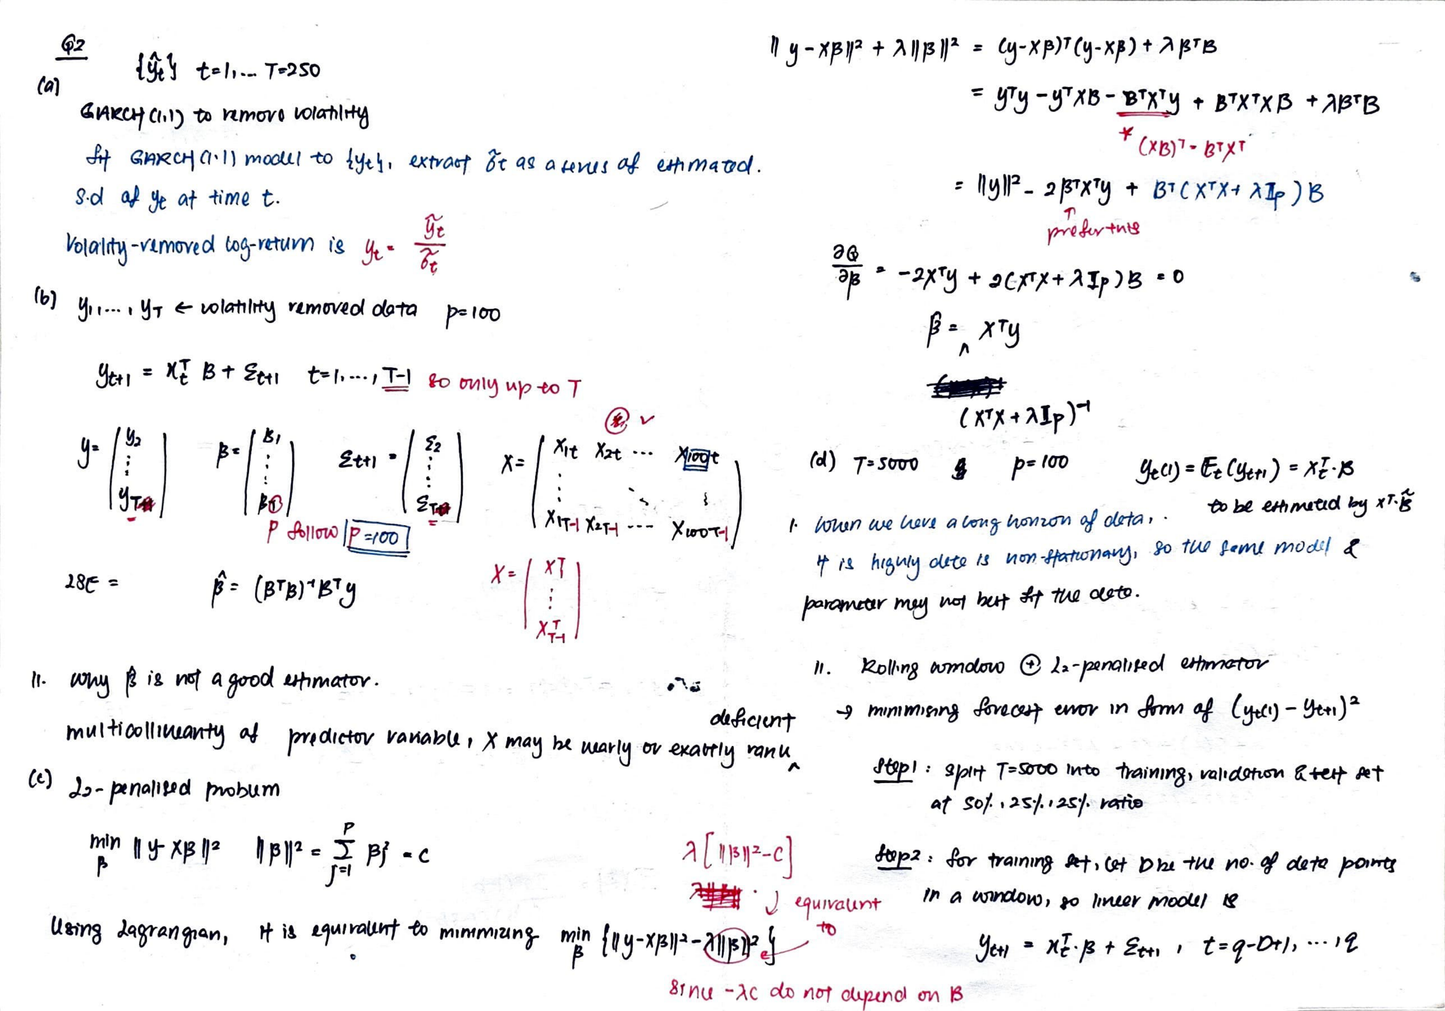 Q2
(a)
{ỹt} t=1,... T=250
GARCH(1,1) to remove volatility
fit GARCH(1,1) model to {yt}, extract σ̃t as a series of estimated.
s.d of yt at time t.
Volality-removed log-return is yt = ỹt / σ̃t
(b) y1,..., yT ← volatility removed data p=100
yt+1 = xtᵀ β + εt+1 t=1,...,T-1 so only up to T
y = (y2 ⋮ yT) β = (β1 ⋮ βp) εt+1 = (ε2 ⋮ εT) X = (X1t X2t ... X100t ⋮ X1T-1 X2T-1 ... X100T-1)
p follow p=100
LSE = β̂ = (BᵀB)⁻¹Bᵀy
X = (X1ᵀ ⋮ XT-1ᵀ)
ii. why β̂ is not a good estimator.
multicollinearity of predictor variable, X may be nearly or exactly rank deficient
(c) L2-penalised problem
min β ||y-Xβ||² ||β||² = Σ j=1 p βj² = C
λ[||β||²-C]
equivalent to
Using Lagrangian, it is equivalent to minimizing min β {||y-Xβ||²-λ||β||²}
since -λC do not depend on β
||y-Xβ||² + λ||β||² = (y-Xβ)ᵀ(y-Xβ) + λβᵀβ
= yᵀy - yᵀXβ - βᵀXᵀy + βᵀXᵀXβ + λβᵀβ
* (Xβ)ᵀ = βᵀXᵀ
= ||y||² - 2βᵀXᵀy + βᵀ(XᵀX + λIp)β
↑
prefer this
∂Q/∂β = -2Xᵀy + 2(XᵀX + λIp)β = 0
β̂ = ^ Xᵀy
(XᵀX + λIp)⁻¹
(d) T=5000 & p=100 yt(1) = Et(yt+1) = xtᵀ·β
to be estimated by xᵀ·β̂
i. when we have a long horizon of data,
it is highly data is non-stationary, so the same model &
parameter may not best fit the data.
ii. Rolling window ⊕ L2-penalised estimator
→ minimising forecast error in form of (yt(1) - yt+1)²
Step1: split T=5000 into training, validation & test set
at 50%, 25%, 25% ratio
Step2: for training set, let D be the no. of data points
in a window, so linear model is
yt+1 = xtᵀ·β + εt+1, t=q-D+1, ..., q